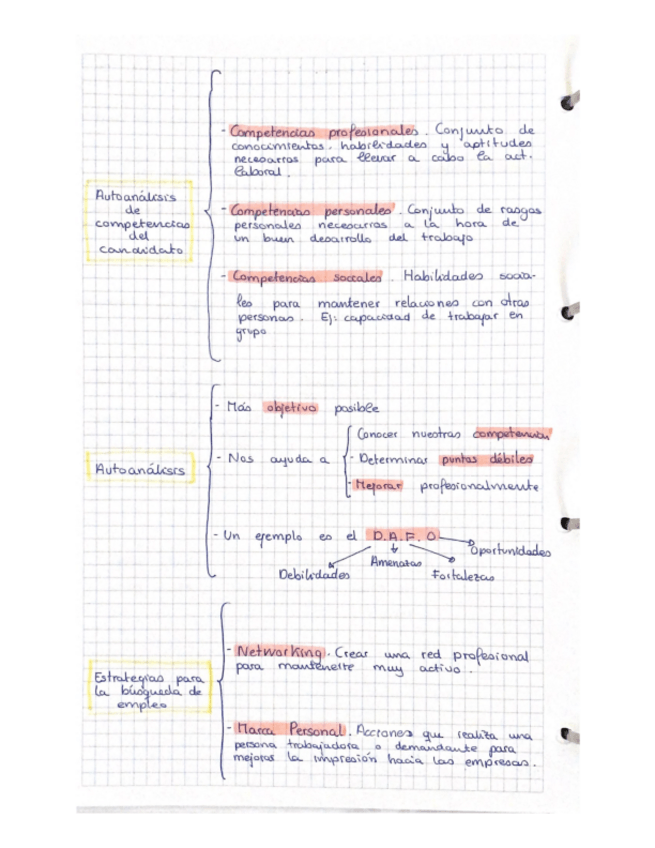 Autoanálisis
de
competencias
del
candidato
- Competencias profesionales. Conjunto de
conocimientos, habilidades y aptitudes
necesarios para llevar a cabo la act.
laboral.
- Competencias personales. Conjunto de rasgos
personales necesarios a la hora de
un buen desarrollo del trabajo
- Competencias sociales. Habilidades socia-
les para mantener relaciones con otras
personas. Ej: capacidad de trabajar en
grupo
Autoanálisis
- Más objetivo posible
- Nos ayuda a
Conocer nuestras competencias
- Determinar puntos débiles
- Mejorar profesionalmente
- Un ejemplo es el D.A.F.O
Oportunidades
Amenazas
Debilidades
Fortalezas
Estrategias para
la búsqueda de
empleo
- Networking. Crear una red profesional
para mantenerte muy activo.
- Marca Personal. Acciones que realiza una
persona trabajadora o demandante para
mejorar la impresión hacia las empresas.